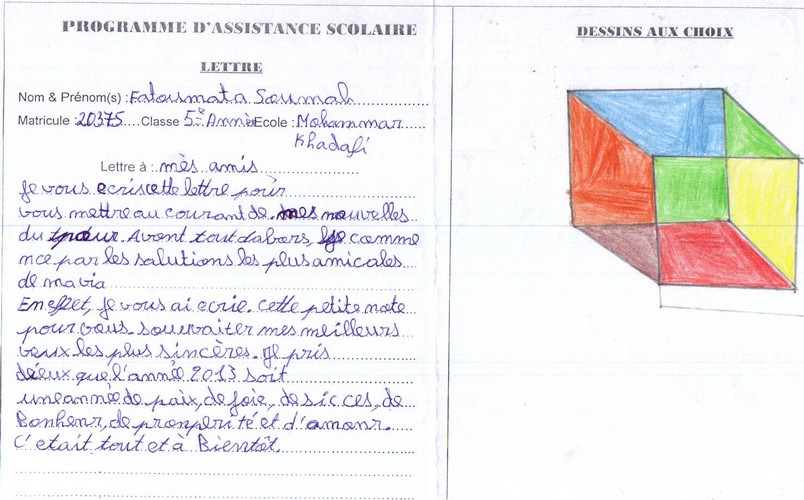 PROGRAMME D'ASSISTANCE SCOLAIRE
LETTRE
Nom & Prénom(s) : Fatoumata Soumah
Matricule 20375 Classe 5è Année Ecole : Mohammar
Khadafi
Lettre à : mès amis
Je vous ecris cette lettre pour
vous mettre au courant de mes nouvelles
du jour. Avent tout dabors, Je comme
nce par les salutions les plus amicales
de ma via
En effet, Je vous ai ecrie cette petite note
pour vous souvaiter mes meilleurs
veux les plus sincères. Je pris
dieux que l'année 2013 soit
une année de paix, de joie, de sicces, de
Bonheur, de prosperité et d'amour.
C'etait tout et à Bientôt.
DESSINS AUX CHOIX